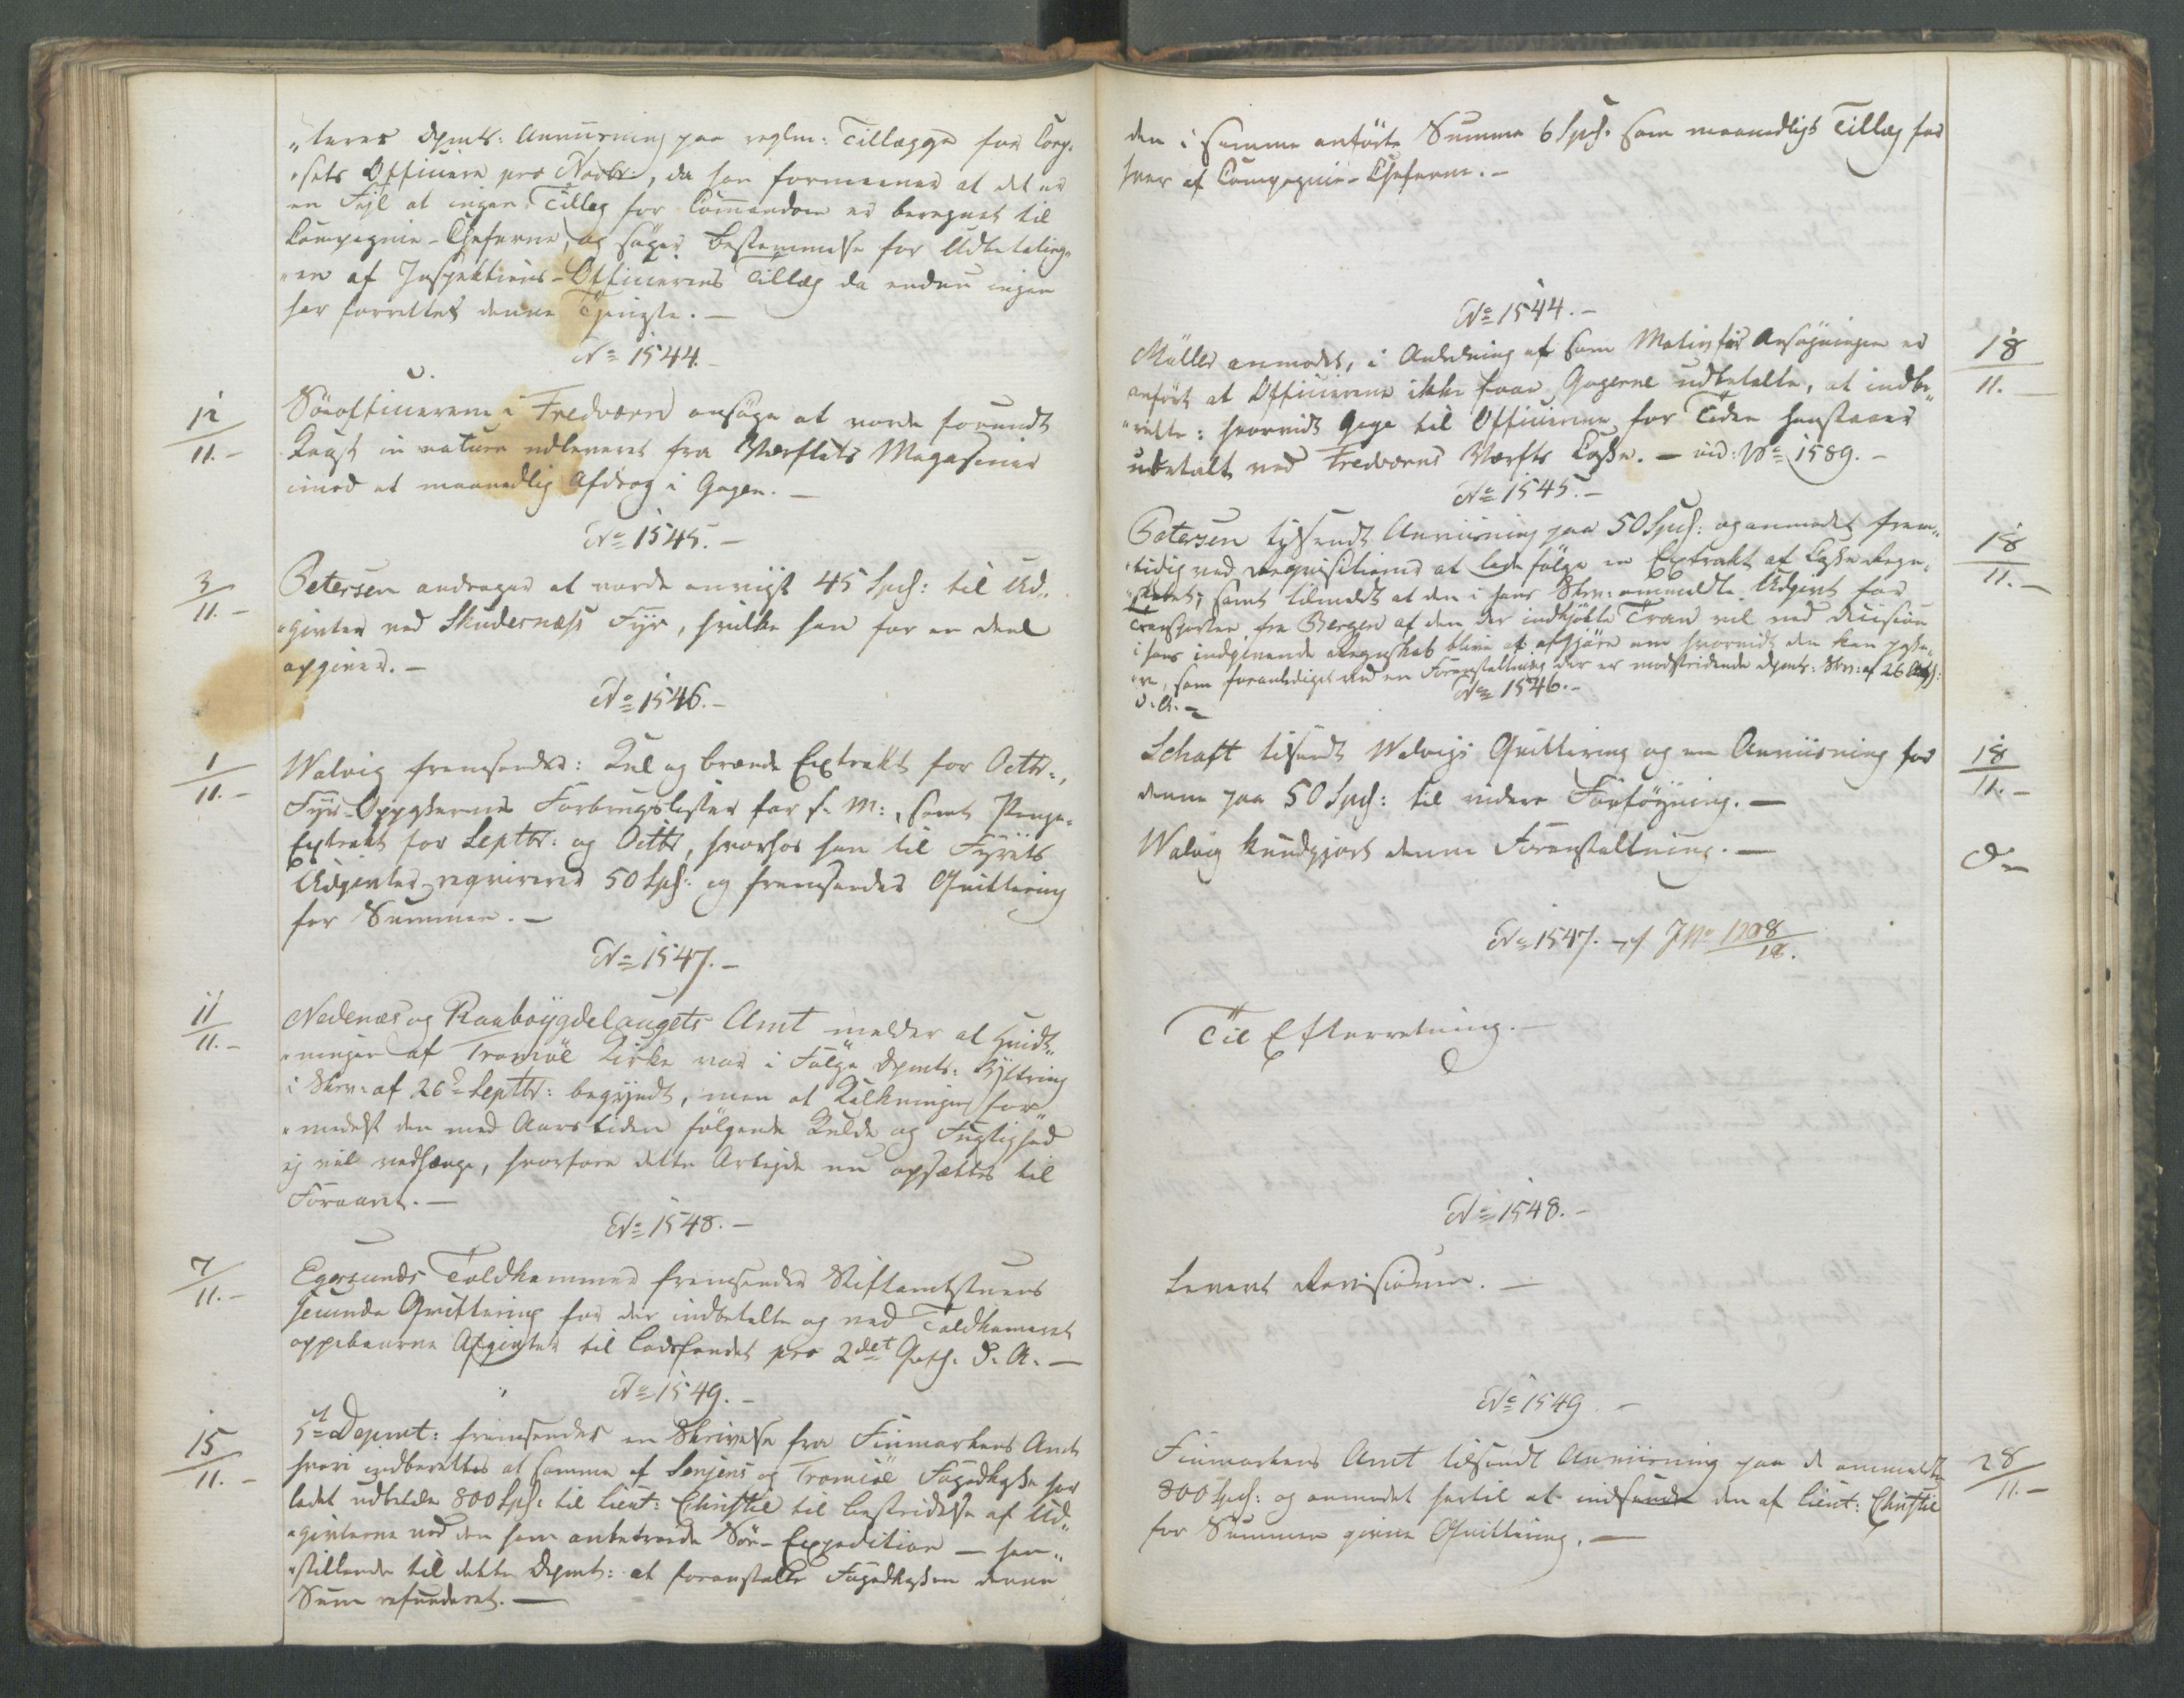 „teres Dpmts: Anviisning paa reglm: Tillægge for Corp„
„sets Officiere pro Novbr:, da han formeener at det er
en Fejl at ingen Tillæg for Commandoen er beregnet til
Compagnie-Cheferne, og søger bestemmelse for Udbetaling„
„en af Inspektions-Officierens Tillæg da endnu ingen
har forrettet denne Tjeneste. —
No 1544. —
12/11. —
Søeofficiererne i Fredværn ansøge at vorde forundt
Kaast in natura udleveret fra Værftets Magasiner
imod et maanedlig Afdrag i Gagen. —
No 1545. —
3/11. —
Petersen andrager at vorde anviist 45 Spd: til Ud„
„givter ved Skudernæss Fyr, hvilke han for en deel
opgiver. —
No 1546. —
1/11. —
Walvig fremsender: Kul og brænde Extrakt for Octbr:,
Fyr-Oppasserens Forbrugslister for s. M:, samt Penge„
Extrakt for Septbr: og Octbr, hvorhos han til Fyrets
Udgivter reqvirerer 50 Spd: og fremsender Qvittering
for Summen. —
No 1547. —
11/11. —
Nedenæs og Raabøygdelaugets Amt melder at Hvidt„
„ningen af Tromøe Kirke var i Følge Dpmts: Yttring
i Skrv: af 26de Septbr: begyndt, men at Kalkningen for„
„medelst den med Aarstiden følgende Kulde og Fugtighed
ej vil vedhænge, hvorfore dette Arbejde nu opsættes til
Foraaret. —
No 1548. —
7/11. —
Egersunds Toldkammer fremsender Stiftamtstuens
secunda Qvittering for der indbetalte og ved Toldkameret
oppebaarne Afgivter til Lodsfondet pro 2det Qvrt: d. A. —
No 1549. —
15/11. —
5te Depmt: fremsender en Skrivelse fra Finmarkens Amt
hvori indberettes at samme af Senjens og Tromsøe Fogedkasse har
ladet udbetale 800 Spd: til Lieut: Christie til bestridelse af Ud„
„givterne ved den ham anbetroede Søe-Expedition — hen„
„stillende til dette Depmt: at foranstalte Fogedkassen denne
Sum refunderet. —
den i samme anførte Summa 6 Spd. som maanedligt Tillæg for
hver af Compagnie-Cheferne. —
No 1544. —
Müller anmodet, i Anledning af som Motiv for Ansøgningen er
anført at Officiererne ikke faae Gagerne udbetalte, at indbe„
„rette: hvorvidt Gage til Officiererne for Tiden henstaaer
ubetalt ved Fredværns Værfts Casse. — vid: No 1589. —
18/11. —
No 1545. —
Petersen tilsendt Anviisning paa 50 Spd: og anmodet frem„
„tidig ved Reqvisitioner at lede følge en Extrakt af Casse Regn„
„skabet, samt tilmeldt at den i hans Skrv: ommeldte Udgivt for
Transporten fra Bergen af den der indkjøbte Tran vil ved Decision
i hans indgivende Regnskab blive at afgjøre om hvorvidt den kan passe„
„re, som foranlediget ved en Foranstaltning der er modstridende Dpmts: Skrv: af 26
d. A. —
18/11. —
No 1546. —
Schaft tilsendt Walvigs Qvittering og en Anviisning for
denne paa 50 Spd: til videre Forføyning. —
18/11. —
Walvig kundgjort denne Foranstaltning. —
Do
No 1547. — J No 1708/18.
Til Efterretning. —
No 1548. —
Leveret Revisionen. —
No 1549. —
Finmarkens Amt tilsendt Anviisning paa de ommeldte
800 Spd: og anmodet hertil at indsende den af Lieut: Christie
for Summen givne Qvittering. —
28/11. —